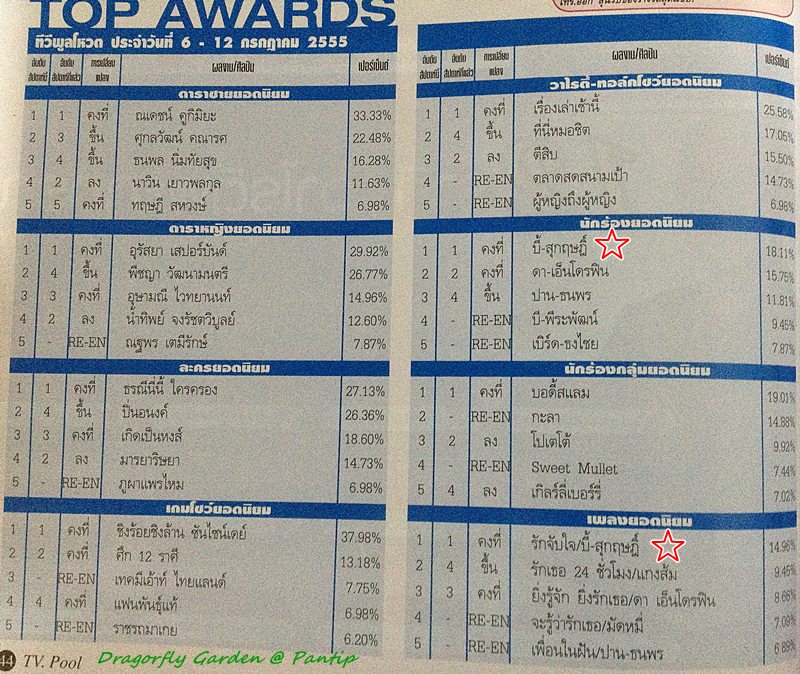 TOP AWARDS
ทีวีพูลโหวต ประจำวันที่ 6 - 12 กรกฎาคม 2555
อันดับสัปดาห์นี้ อันดับสัปดาห์ที่แล้ว การเปลี่ยนแปลง ผลงาน/ศิลปิน เปอร์เซ็นต์
ดาราชายยอดนิยม
1 1 คงที่ ณเดชน์ คูกิมิยะ 33.33%
2 3 ขึ้น ศุกลวัฒน์ คณารศ 22.48%
3 4 ขึ้น ธนพล นิ่มทัยสุข 16.28%
4 2 ลง นาวิน เยาวพลกุล 11.63%
5 5 คงที่ ทฤษฎี สหวงษ์ 6.98%
ดาราหญิงยอดนิยม
1 1 คงที่ อุรัสยา เสปอร์บันด์ 29.92%
2 4 ขึ้น พิชญา วัฒนามนตรี 26.77%
3 3 คงที่ อุษามณี ไวทยานนท์ 14.96%
4 2 ลง น้ำทิพย์ จงรัชตวิบูลย์ 12.60%
5 - RE-EN ณฐพร เตมีรักษ์ 7.87%
ละครยอดนิยม
1 1 คงที่ ธรณีนี่นี้ ใครครอง 27.13%
2 4 ขึ้น ปิ่นอนงค์ 26.36%
3 3 คงที่ เกิดเป็นหงส์ 18.60%
4 2 ลง มารยาริษยา 14.73%
5 - RE-EN ภูผาแพรไหม 6.98%
เกมโชว์ยอดนิยม
1 1 คงที่ ชิงร้อยชิงล้าน ซันไชน์เดย์ 37.98%
2 2 คงที่ ศึก 12 ราศี 13.18%
3 - RE-EN เทคมีเอ้าท์ ไทยแลนด์ 7.75%
4 4 คงที่ แฟนพันธุ์แท้ 6.98%
5 - RE-EN ราชรถมาเกย 6.20%
อันดับสัปดาห์นี้ อันดับสัปดาห์ที่แล้ว การเปลี่ยนแปลง ผลงาน/ศิลปิน เปอร์เซ็นต์
วาไรตี้-ทอล์กโชว์ยอดนิยม
1 1 คงที่ เรื่องเล่าเช้านี้ 25.58%
2 4 ขึ้น ที่นี่หมอชิต 17.05%
3 2 ลง ตีสิบ 15.50%
4 - RE-EN ตลาดสดสนามเป้า 14.73%
5 - RE-EN ผู้หญิงถึงผู้หญิง 6.98%
นักร้องยอดนิยม
1 1 คงที่ บี้-สุกฤษฎิ์ 18.11%
2 2 คงที่ ดา-เอ็นโดรฟิน 15.75%
3 4 ขึ้น ปาน-ธนพร 11.81%
4 - RE-EN บี-พีระพัฒน์ 9.45%
5 - RE-EN เบิร์ด-ธงไชย 7.87%
นักร้องกลุ่มยอดนิยม
1 1 คงที่ บอดี้สแลม 19.01%
2 - RE-EN กะลา 14.88%
3 2 ลง โปเตโต้ 9.92%
4 - RE-EN Sweet Mullet 7.44%
5 4 ลง เกิลร์ลี่เบอร์รี่ 7.02%
เพลงยอดนิยม
1 1 คงที่ รักจับใจ/บี้-สุกฤษฎิ์ 14.96%
2 4 ขึ้น รักเธอ 24 ชั่วโมง/แกงส้ม 9.45%
3 3 คงที่ ยิ่งรู้จัก ยิ่งรักเธอ/ดา เอ็นโดรฟิน 8.66%
4 - RE-EN จะรู้ว่ารักเธอ/มัดหมี่ 7.09%
5 - RE-EN เพื่อนในฝัน/ปาน-ธนพร 6.89%
44 TV. Pool
Dragorfly Garden @ Pantip